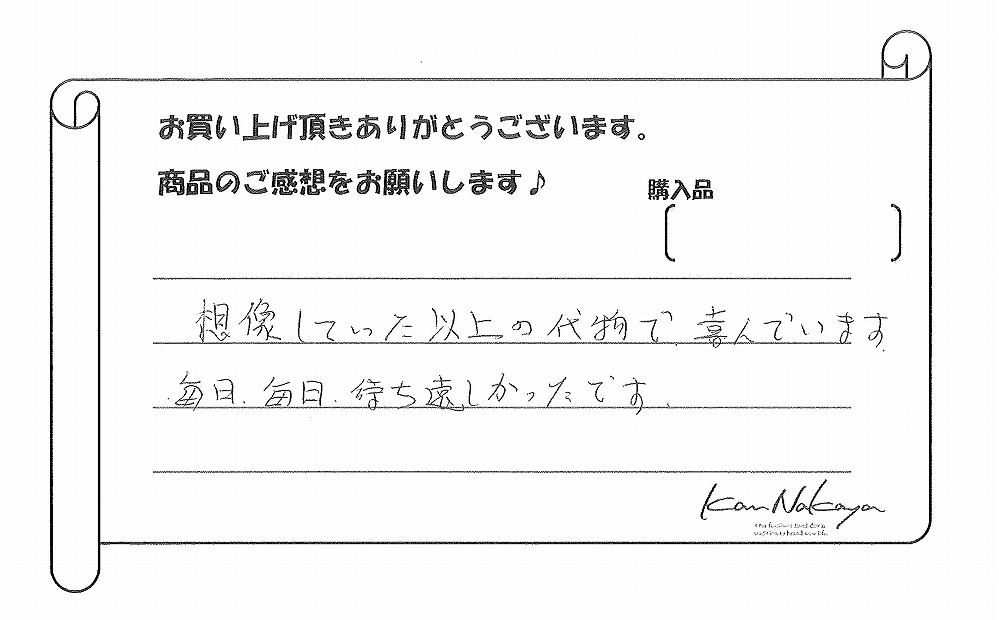 お買い上げ頂きありがとうございます。
商品のご感想をお願いします♪
購入品
想像していった以上の代物で、喜んでいます.
毎日、毎日、待ち遠しかったです.
Kan Nakaya